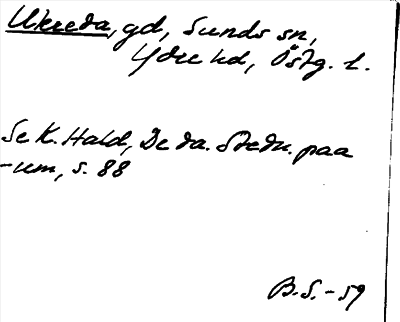 Ukreda, gd, Sunds sn,
Ydre hd, Östg. l.
Se K. Hald, De da. Stedn. paa
-um, s. 88
B.S. - 59